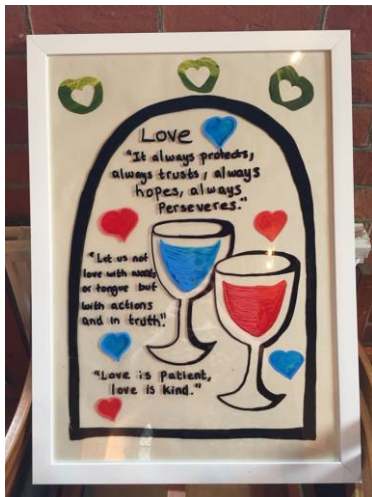 Love
"It always protects,
always trusts, always
hopes, always
Perseveres."
"Let us not
love with words
or tongue but
with actions
and in truth."
"Love is Patient,
love is kind."